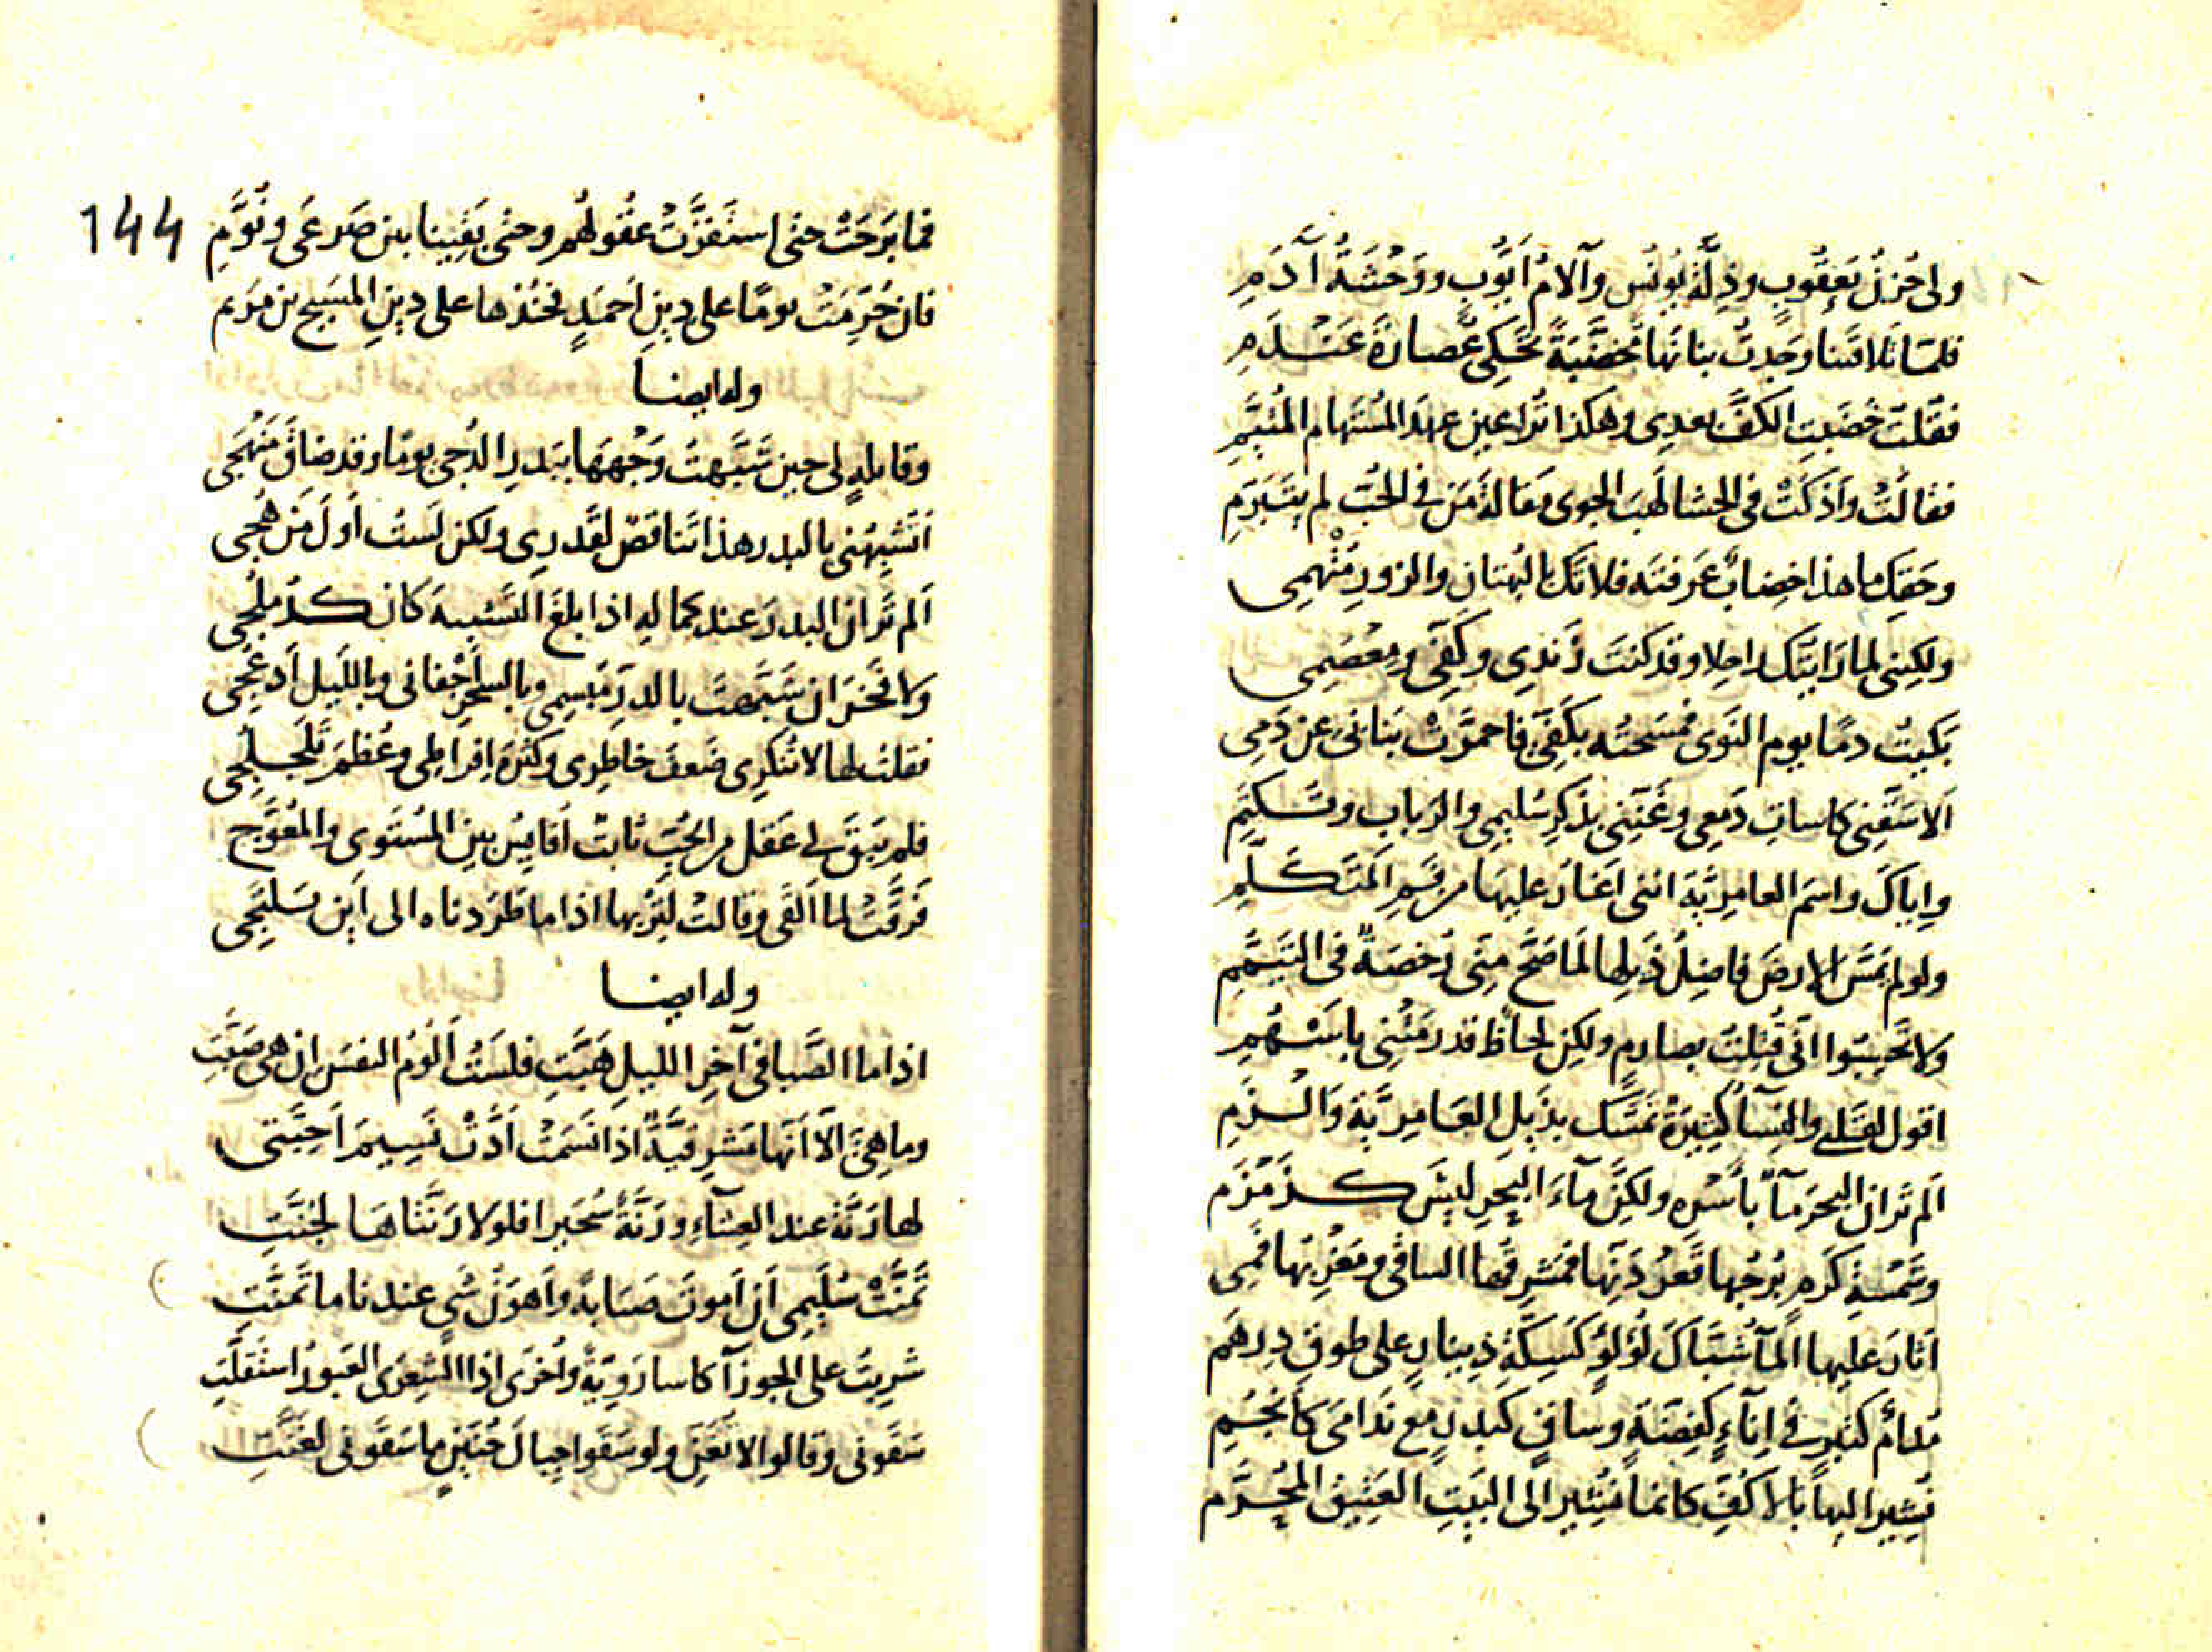 ولى حُزنُ يَعقُوبٍ وذِلَّةُ يُونُسٍ وآلامُ اَيُّوبٍ ووَحْشَةُ آدَمِ
فلمّا تلاقَينا وجَدتُ بنانَها مُخضَّبَةً تَحكِى عُصارَةَ عَنْدَمِ
فقلتُ خَضَبتِ الكفَّ بعدِى وهكذا تُراعين عهدَ المُستَهامِ المُتَيَّمِ
فقالتْ واَذكَتْ فى الحشا لَهَبَ الجوى مقالةَ مَن فى الحُبّ لم يتَبَرّمِ
وحَقِّكِ ما هذا خِضابٌ عَرَفتَه فلا تكُ بالبُهتانِ والزورِ مُتْهمِى
ولكِننى لما رَايتُكَ راحِلا وقد كنتَ زَندِى وكَفِّى ومِعْصَمِى
بَكَيتُ دمًا يوم النَوَى فمَسَحتُه بكَفِّىَ فاحمرَّتْ بَنانِىَ عن دَمِى
اَلا سَقِّنِى كاساتِ دَمعِى وغَنِّنِى بذكرِ سُلَيمِى والرَبابِ وتَسكُتِمِ
وإياكَ واسمَ العامِريّةِ اننى اغارُ عليها من فمِ المُتَكلِّمِ
ولو لم تَمَسَّ الارضَ فاضِلُ ذَيلِها لَمَا صَحّ مِنّى رُخصَةٌ فى التيَمُّمِ
ولا تَحسِبُوا انّى قُتِلتُ بصارمٍ ولكِن لِحاظٌ قد رمَتْنِى باَسْهُمِ
اقول لقلبى والنِسآُ كثِيرَةٌ تمَسَّك بذَيلِ العَامِريَّةِ وَالْزَمِ
اَلم تَرَ ان البحرَ مآٌ باَسْرِه ولكِنَّ مآءَ البحرِ ليسَ كزَمْزَمِ
وشمْسةِ كَرمٍ بُرجُها قَعرُ دَنِّها فمَشرِقُها الساقى ومَغرِبُها فَمِى
اَثارَ عليها المآُ شُبّاكَ لُؤلُؤٍ كَسِكّةِ دِينارٍ على طوقِ دِرهَمِ
مُدامٌ كتِبرٍ فى اِناءٍ كفِضّةٍ وساقٍ كبدرٍ مع نَدامَى كأنجُمِ
نُشِير اليها بالاكُفِّ كانما نُشِير الى البَيتِ العَتِيقِ المُحَرَّمِ
144
فما بَرَحَتْ حتى استَفَزَّتْ عُقولَهُم وحتى بَقِينا بين صَرعَى ونُوَّمِ
فان حُرِّمَتْ يومًا على دِينِ اَحمَدٍ فخُذها على دِينِ المَسِيح بن مَريَم
وله ايضا
وقائلةٍ لى حِين شَبَّهتُ وَجْهَها ببَدرِ الدُجى يومًا وقد ضاقَ مَنْهَجى
اَتُشبِهُنى بالبدر هذا تناقصٌ لقَدرِى ولكن لَستَ أولَ مَن هُجى
اَلم تَرَ ان البدرَ عند كمالهِ اذا بلغَ التَشبِيه كان كدُملُجى
ولا فخرَ ان شَبَّهتَ بالدرِّ مَبسِمِى وبالسِحرِ اجْفانى وبالليل اَدعَجى
فقلت لها لا تُنكِرِى ضَعفَ خاطِرِى وكثرَةَ إفراطِى وعُظمَ تَلَجلُجى
فلم يَبقَ لى عَقل من الحُبّ ثابتٌ اُقايِسُ بين المُستَوِى والمُعَوَّجِ
فَرَقَّتْ لما اَلقَى وقالتْ لِتِربِها اذا ما طَرَدناه الى اَين يَلتَجى
وله ايضا
اذا ما الصَّبا فى آخرِ الليلِ هَبَّتِ فلَستُ اَلُومُ النفسَ ان هى صَبَّتِ
وما هِىَ الَّا اَنَّها مَشرِقيَّةٌ اذا نَسَمَتْ اَدَّتْ نَسِيمَ اَحِبَّتى
لها رَنَّةٌ عند العِشآءِ ورَنَّةٌ سُحَيرا فلولا رَنَّتاها لجُنَّتِ
تَمنَّتْ سُلَيمِى اَن اَموتَ صَبابةً واَهوَنُ شَىٍ عندنا ما تَمنَّتِ
شَرِبتُ على الجوزآ كاسا رَوِيّةً واُخرَى اذا الشِعرَى العَبورُ استَقلَّتِ
سَقَونى وقالوا لا تُغَنِّ ولو سَقَوا جِبالَ حُنَينٍ ما سَقَونى لَغَنَّتِ